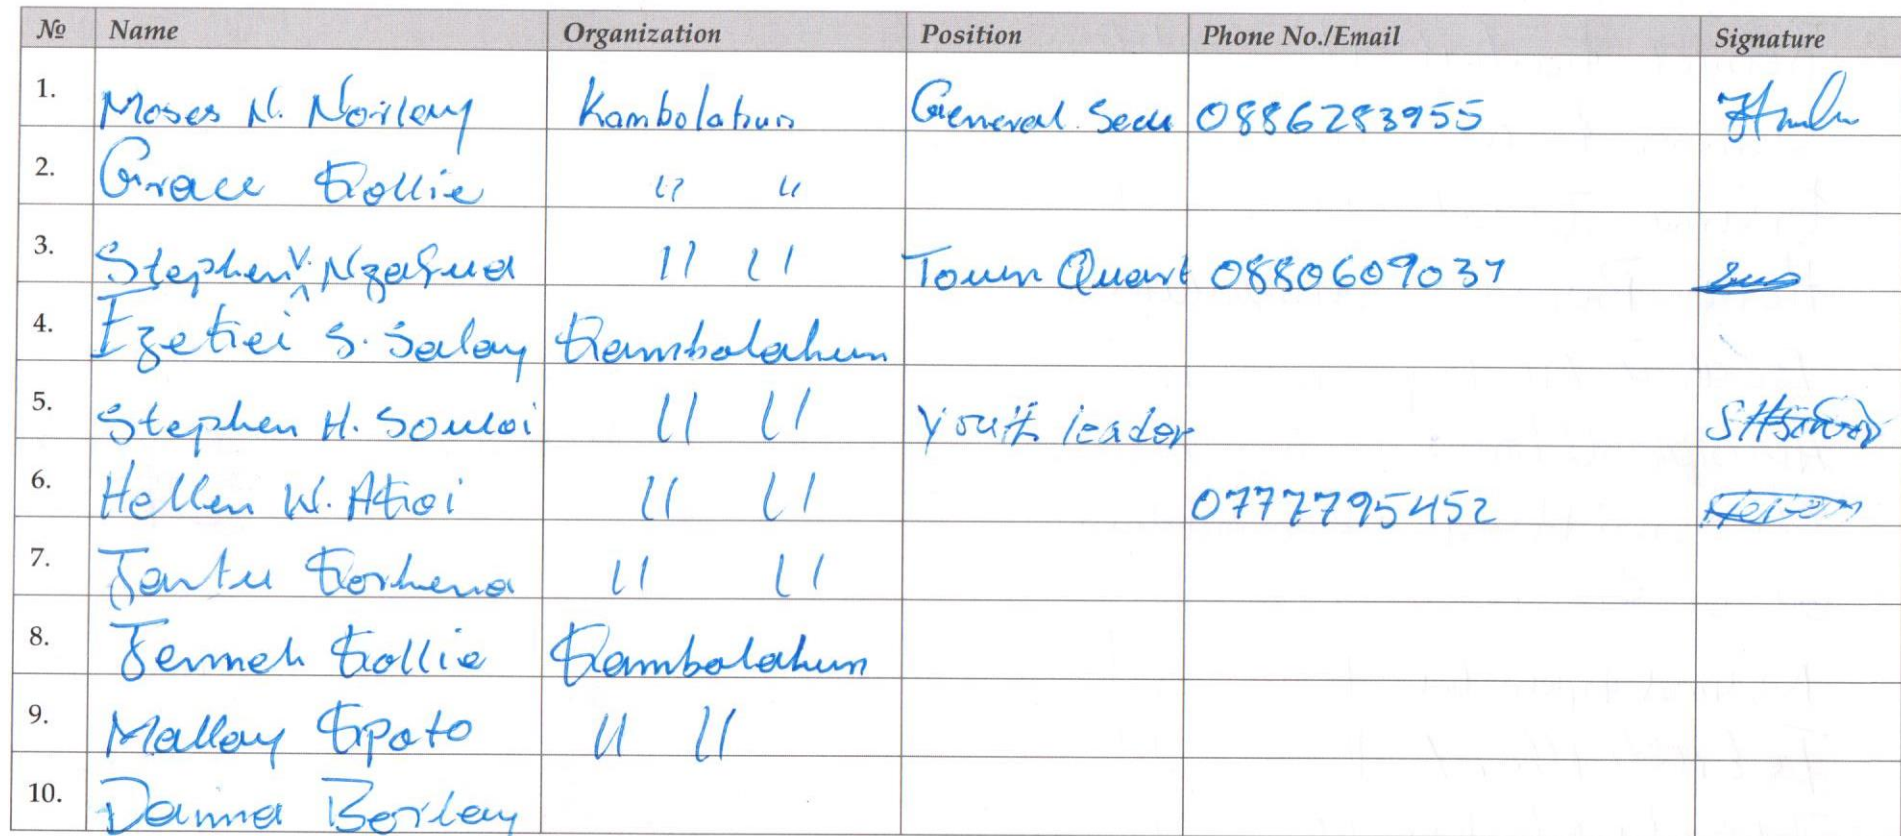 № Name Organization Position Phone No./Email Signature
1. Moses N. Norlay Kambolahun General Secu 0886283955
2. Grace Kollie " "
3. Stephen V. Ngafua " " Town Quart 0880609037
4. Ezekiei S. Salay Kambolahun
5. Stephen H. Souloi " " Youth leader
6. Hellen W. Akoi " " 0777795452
7. Korhena " "
8. Kollie Kambolahun
9. Mallay Kpoto " "
10. Borlay